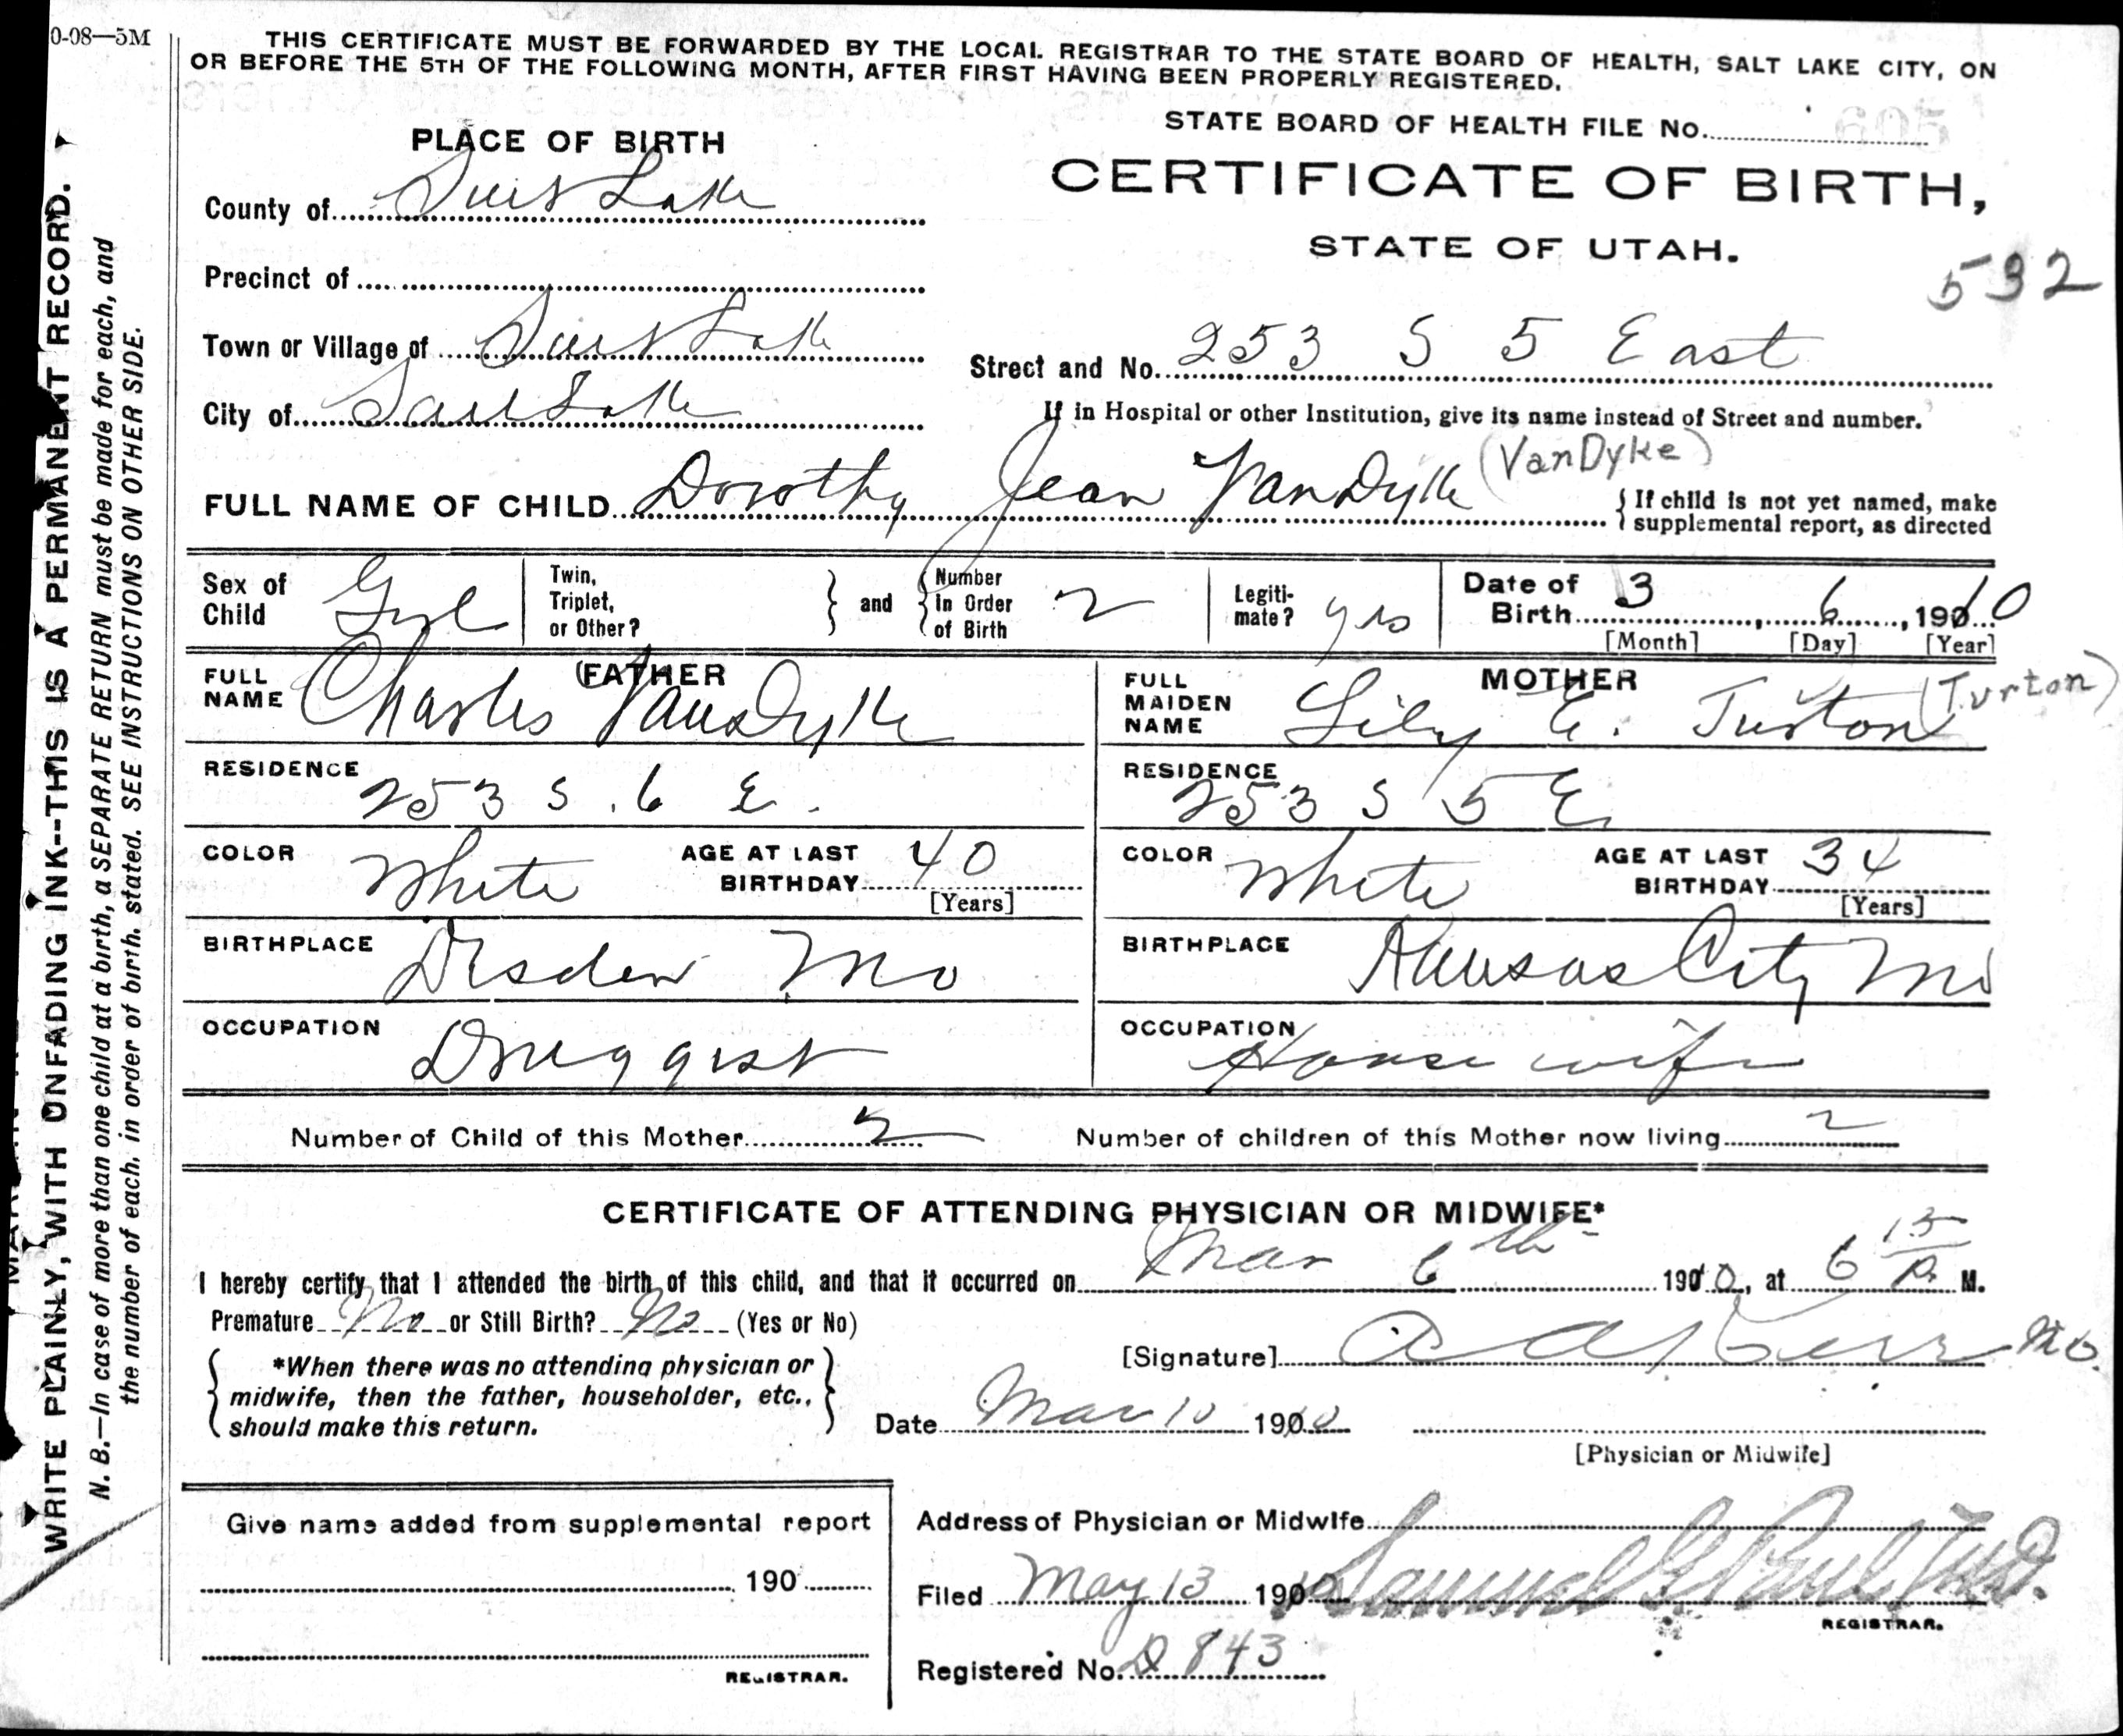 0-08—5M
THIS CERTIFICATE MUST BE FORWARDED BY THE LOCAL REGISTRAR TO THE STATE BOARD OF HEALTH, SALT LAKE CITY, ON
OR BEFORE THE 5TH OF THE FOLLOWING MONTH, AFTER FIRST HAVING BEEN PROPERLY REGISTERED.
STATE BOARD OF HEALTH FILE No.
PLACE OF BIRTH
CERTIFICATE OF BIRTH,
STATE OF UTAH.
532
County of Salt Lake
Precinct of
Town or Village of Salt Lake
Street and No. 253 S 5 East
City of Salt Lake
If in Hospital or other Institution, give its name instead of Street and number.
FULL NAME OF CHILD Dorothy Jean VanDyke (VanDyke)
{ If child is not yet named, make
supplemental report, as directed
Sex of Child Girl
Twin, Triplet, or Other?
and
Number in Order of Birth 2
Legiti-mate? yes
Date of Birth 3 6, 1910
[Month] [Day] [Year]
FATHER
FULL NAME Charles VanDyke
MOTHER
FULL MAIDEN NAME Lily E. Turton (Turton)
RESIDENCE 253 S. 6 E.
RESIDENCE 253 S 5 E
COLOR White AGE AT LAST BIRTHDAY 40 [Years]
COLOR White AGE AT LAST BIRTHDAY 34 [Years]
BIRTHPLACE Mo
BIRTHPLACE Kansas City Mo
OCCUPATION Druggist
OCCUPATION House wife
Number of Child of this Mother 2
Number of children of this Mother now living 2
CERTIFICATE OF ATTENDING PHYSICIAN OR MIDWIFE*
I hereby certify that I attended the birth of this child, and that it occurred on Mar 6th 1910, at 6 15 P. M.
Premature No or Still Birth? No (Yes or No)
*When there was no attending physician or
midwife, then the father, householder, etc.,
should make this return.
[Signature] Kerr M.D.
Date Mar 10 1910
[Physician or Midwife]
Give name added from supplemental report
190
REGISTRAR.
Address of Physician or Midwife
Filed May 13 1910 Samuel G. Paul M.D.
REGISTRAR.
Registered No. D 843
WRITE PLAINLY, WITH UNFADING INK--THIS IS A PERMANENT RECORD.
N. B.—In case of more than one child at a birth, a SEPARATE RETURN must be made for each, and
the number of each, in order of birth, stated. SEE INSTRUCTIONS ON OTHER SIDE.